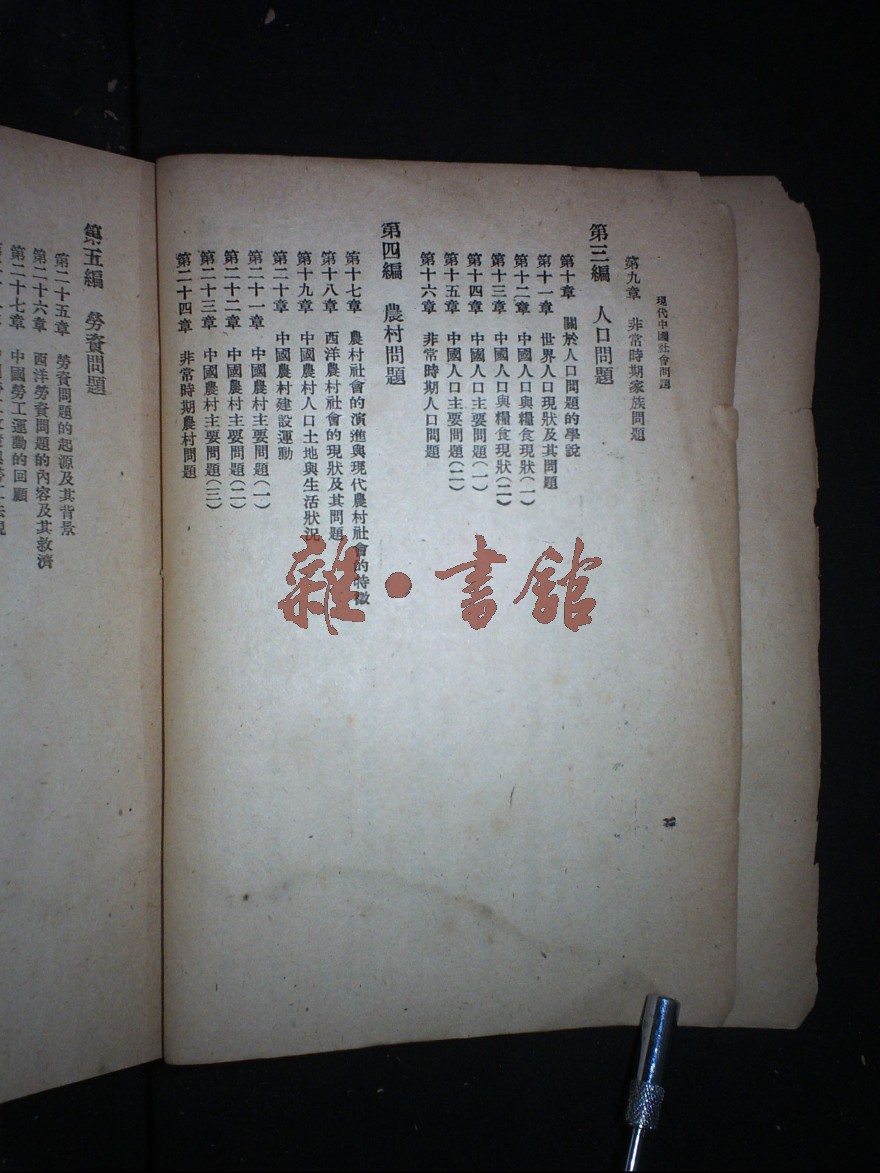 現代中國社會問題
第九章 非常時期家族問題
第三編 人口問題
第十章 關於人口問題的學說
第十一章 世界人口現狀及其問題
第十二章 中國人口與糧食現狀(一)
第十三章 中國人口與糧食現狀(二)
第十四章 中國人口主要問題(一)
第十五章 中國人口主要問題(二)
第十六章 非常時期人口問題
第四編 農村問題
第十七章 農村社會的演進與現代農村社會的特徵
第十八章 西洋農村社會的現狀及其問題
第十九章 中國農村人口土地與生活狀況
第二十章 中國農村建設運動
第二十一章 中國農村主要問題(一)
第二十二章 中國農村主要問題(二)
第二十三章 中國農村主要問題(三)
第二十四章 非常時期農村問題
第五編 勞資問題
第二十五章 勞資問題的起源及其背景
第二十六章 西洋勞資問題的內容及其救濟
第二十七章 中國勞工運動的回顧
雜·書館